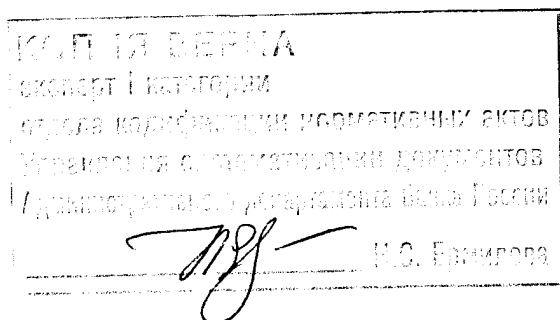 КОПИЯ ВЕРНА
эксперт I категории
отдела кодификации нормативных актов
Управления систематизации документов
Административного департамента Банка России
Н.О. Ермилова